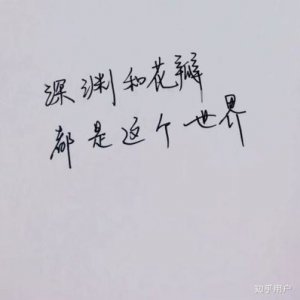 深渊和花瓣
都是这个世界
知乎用户